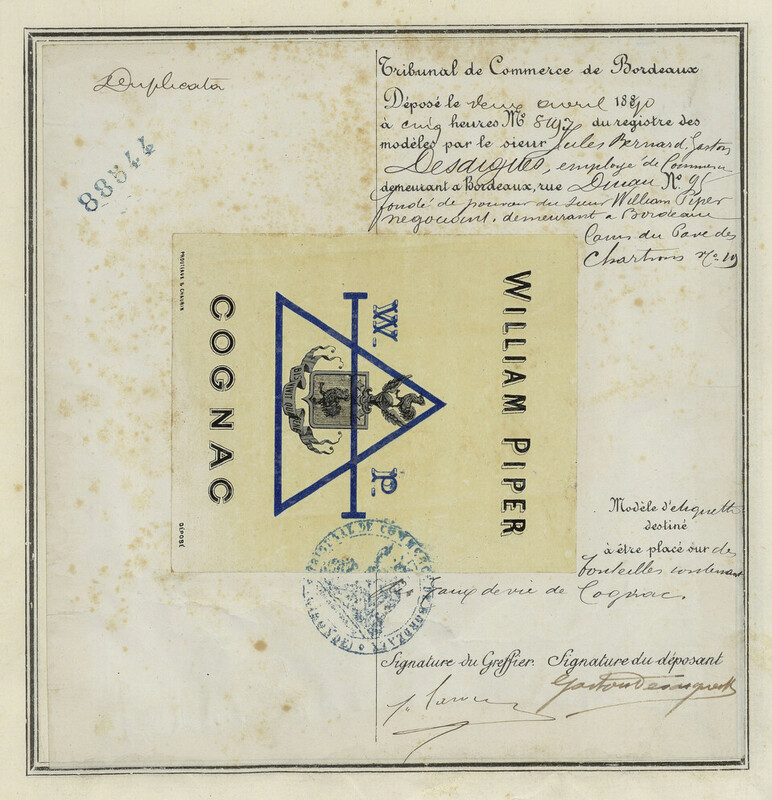 Duplicata
88544
Tribunal de Commerce de Bordeaux
Déposé le deux avril 1890
à cinq heures No du registre des
modèles par le sieur Jules Bernard Gaston
employé de Commerce
demeurant a Bordeaux, rue No 95
fondé de pouvoir du sieur William Piper
négociant, demeurant a Bordeaux
Cours du Pavé des
Chartrons No 19
WILLIAM PIPER
W. P.
COGNAC
DÉPOSÉ
Modèle d'etiquette
destiné
à être placé sur des
bouteilles contenant
eaux de vie de Cognac.
TRIBUNAL DE COMMERCE DE BORDEAUX
Signature du Greffier. Signature du déposant